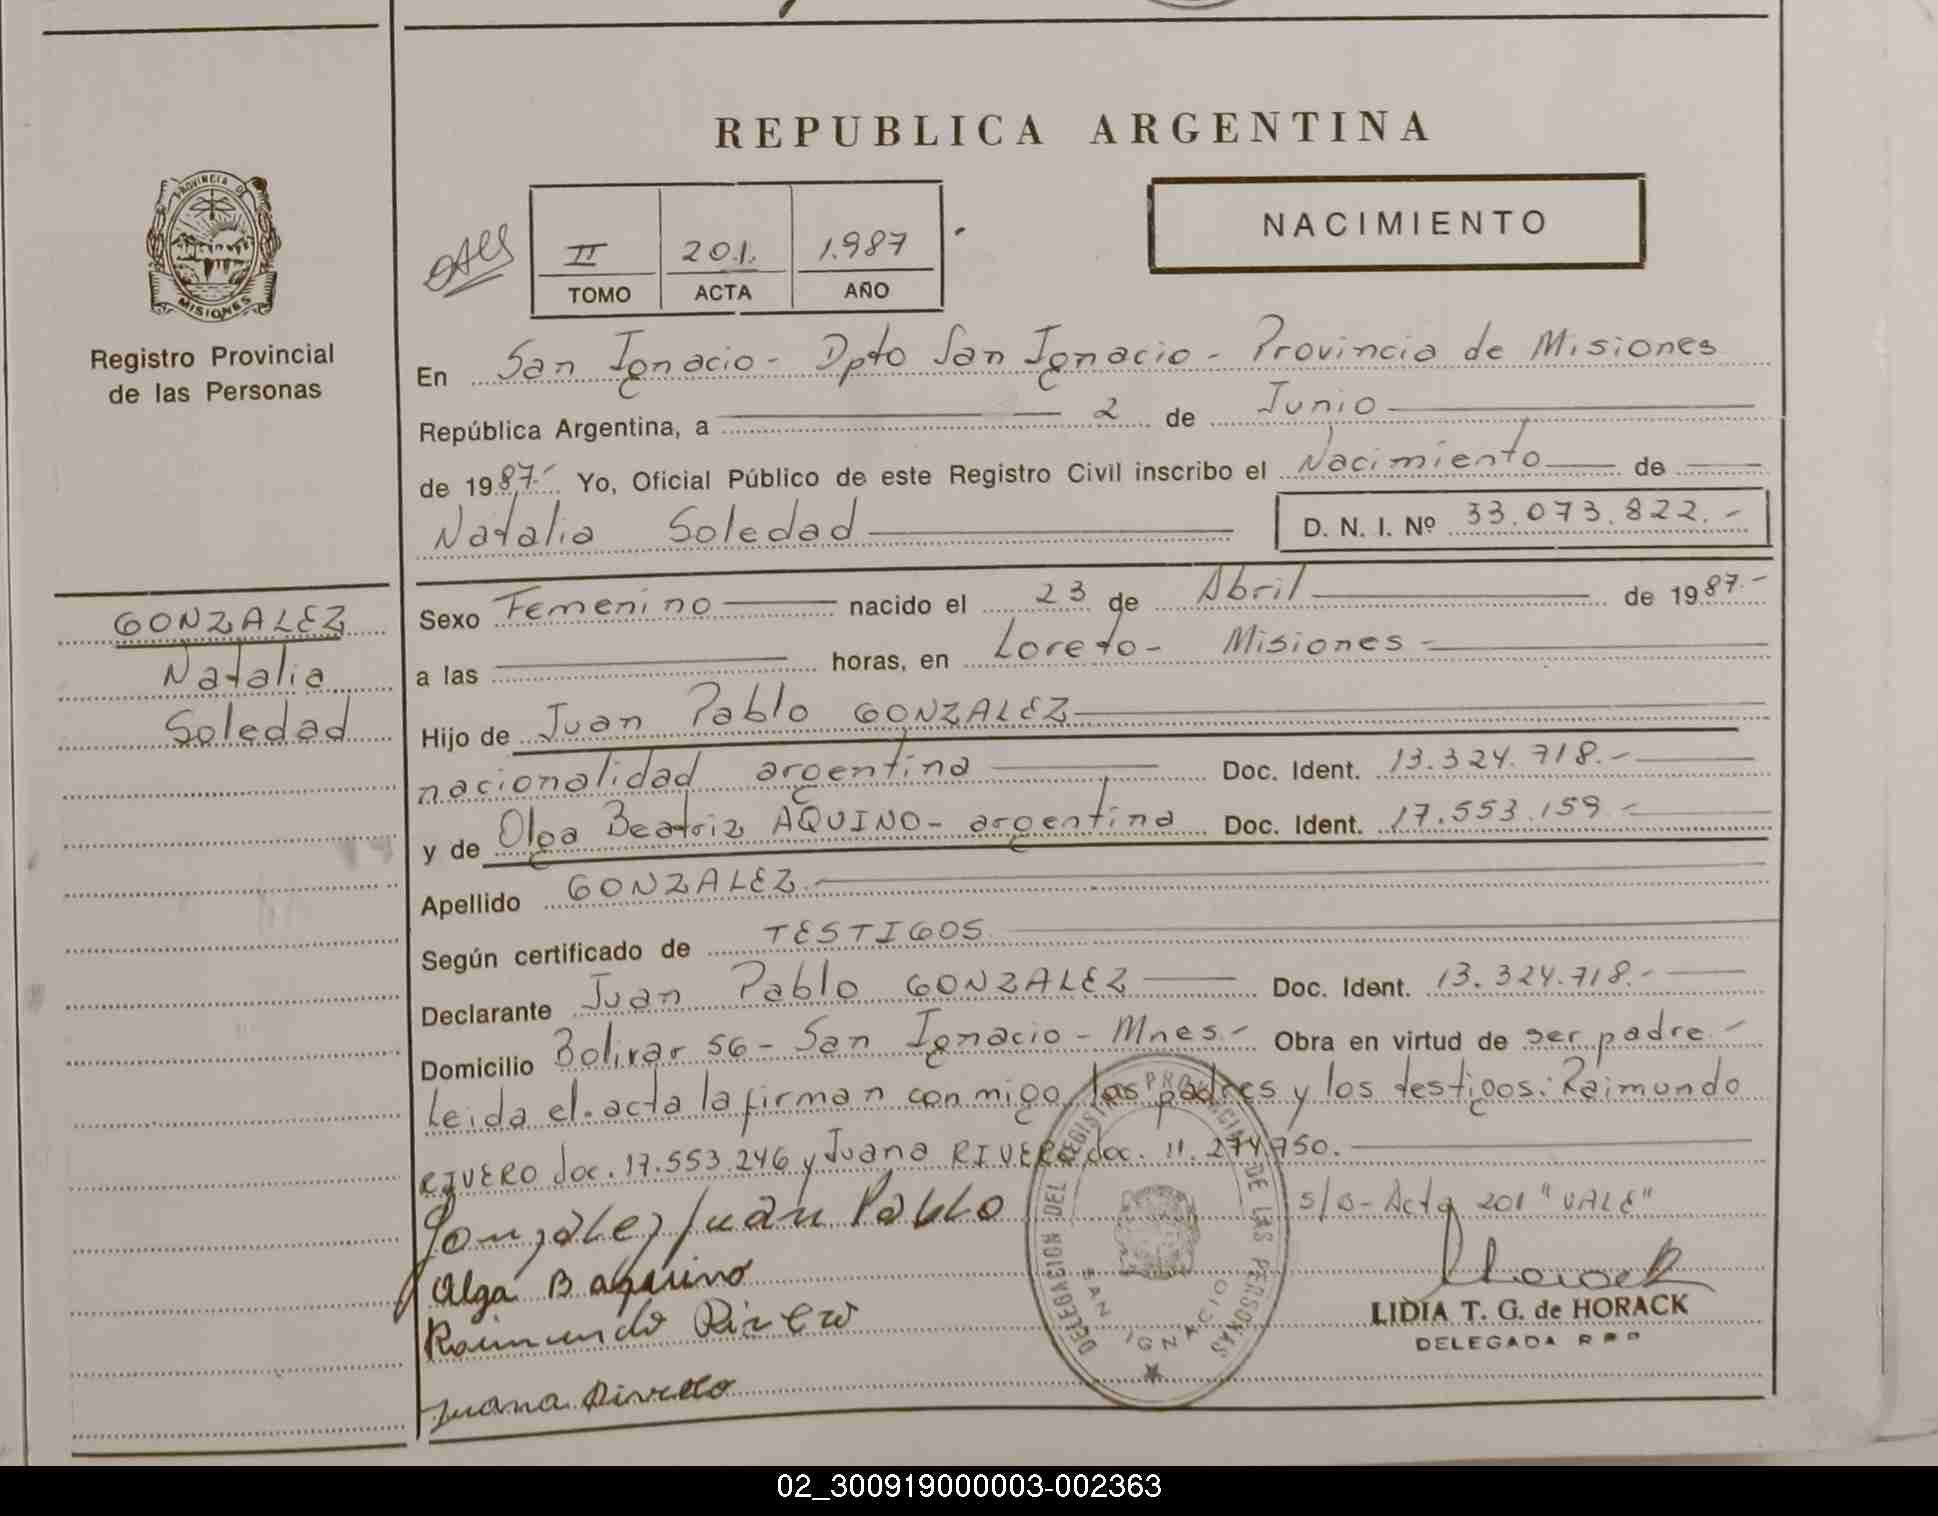 REPUBLICA ARGENTINA
PROVINCIA DE
MISIONES
Registro Provincial
de las Personas
II 201. 1.987
TOMO ACTA AÑO
NACIMIENTO
En San Ignacio - Dpto San Ignacio - Provincia de Misiones
República Argentina, a 2 de Junio
de 1987.- Yo, Oficial Público de este Registro Civil inscribo el Nacimiento de
Natalia Soledad D. N. I. Nº 33.073.822.-
GONZALEZ
Natalia
Soledad
Sexo Femenino nacido el 23 de Abril de 1987.-
a las horas, en Loreto - Misiones -
Hijo de Juan Pablo GONZALEZ
nacionalidad argentina Doc. Ident. 13.324.718.-
y de Olga Beatriz AQUINO - argentina Doc. Ident. 17.553.159 -
Apellido GONZALEZ.
Según certificado de TESTIGOS
Declarante Juan Pablo GONZALEZ Doc. Ident. 13.324.718.-
Domicilio Bolivar 56 - San Ignacio - Mnes - Obra en virtud de ser padre.-
Leida el acta la firman conmigo los padres y los testigos: Raimundo
RIVERO doc. 17.553.246 y Juana RIVERO doc. 11.274.750.
González Juan Pablo
s/b - Acta 201 "VALE"
Olga B Aquino
Raimundo Rivero
Juana Rivero
DELEGACION DEL REGISTRO PROVINCIAL DE LAS PERSONAS
SAN IGNACIO
LIDIA T. G. de HORACK
DELEGADA R P P
02_300919000003-002363